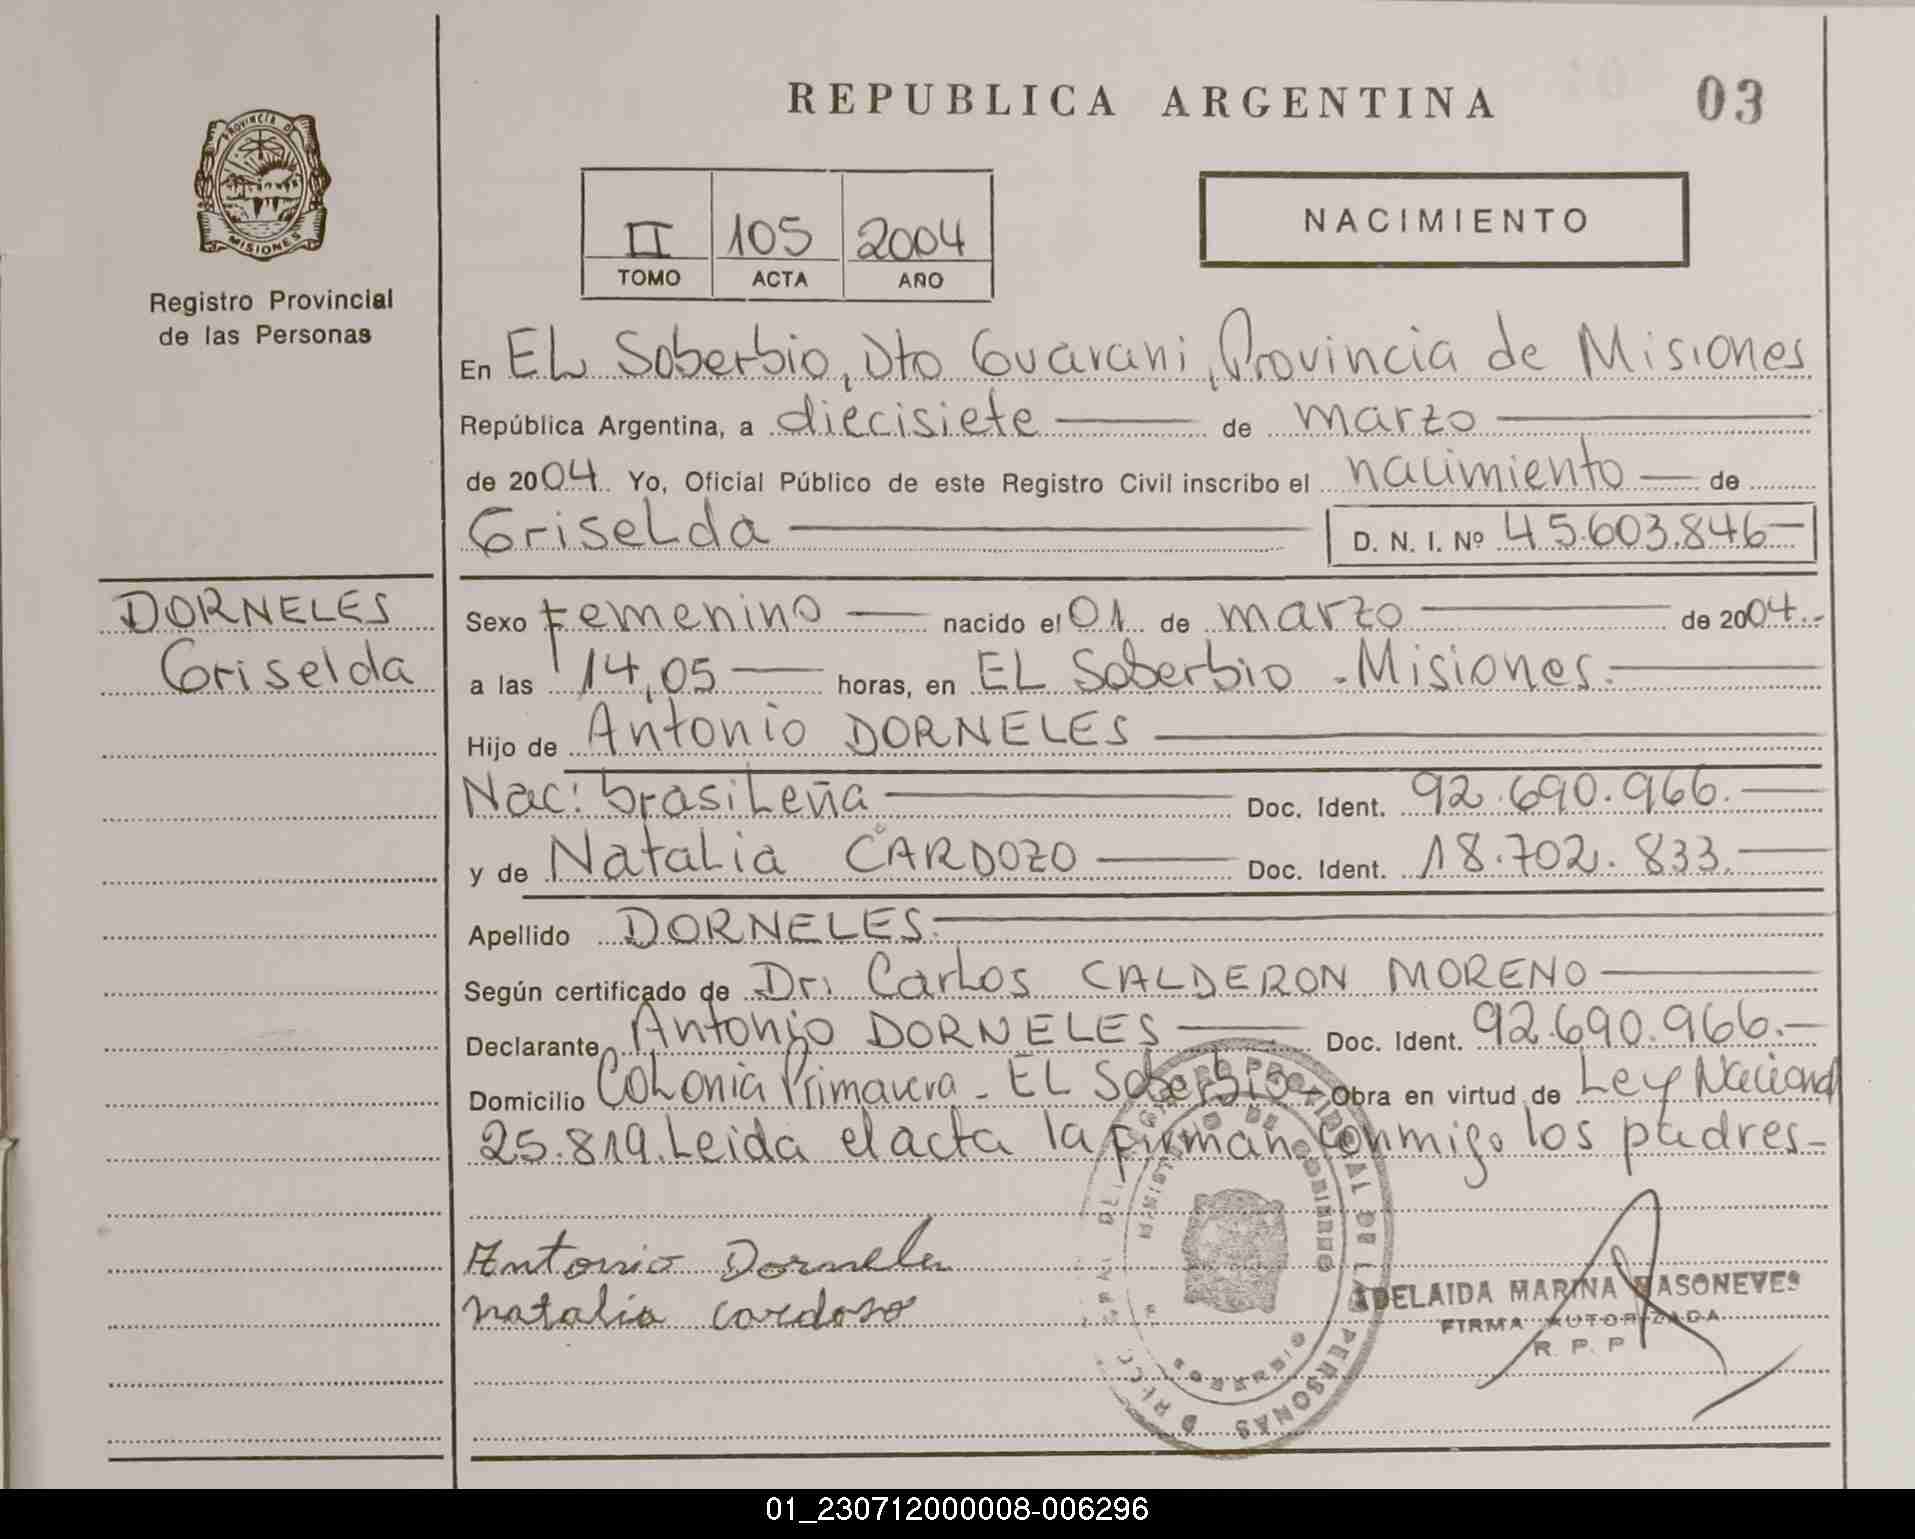 REPUBLICA ARGENTINA
03
PROVINCIA DE
MISIONES
Registro Provincial
de las Personas
II 105 2004
TOMO ACTA AÑO
NACIMIENTO
En EL Soberbio, Dto Guarani, Provincia de Misiones
República Argentina, a diecisiete de marzo
de 2004. Yo, Oficial Público de este Registro Civil inscribo el nacimiento de
Griselda D. N. I. Nº 45.603.846
DORNELES
Griselda
Sexo Femenino nacido el 01 de marzo de 2004.-
a las 14,05 horas, en EL Soberbio - Misiones.
Hijo de Antonio DORNELES
Nac: brasileña Doc. Ident. 92.690.966.
y de Natalia CARDOZO Doc. Ident. 18.702.833.
Apellido DORNELES.
Según certificado de Dr: Carlos CALDERON MORENO
Declarante Antonio DORNELES Doc. Ident. 92.690.966.-
Domicilio Colonia Primavera - EL Soberbio - Obra en virtud de Ley Nacional
25.819. Leida el acta la firman conmigo los padres-
Antonio Dorneles
natalia cardoso
ADELAIDA MARINA
FIRMA AUTORIZADA
R. P. P
MINISTERIO DE GOBIERNO
PROVINCIAL DE LAS PERSONAS
MISIONES
01_230712000008-006296